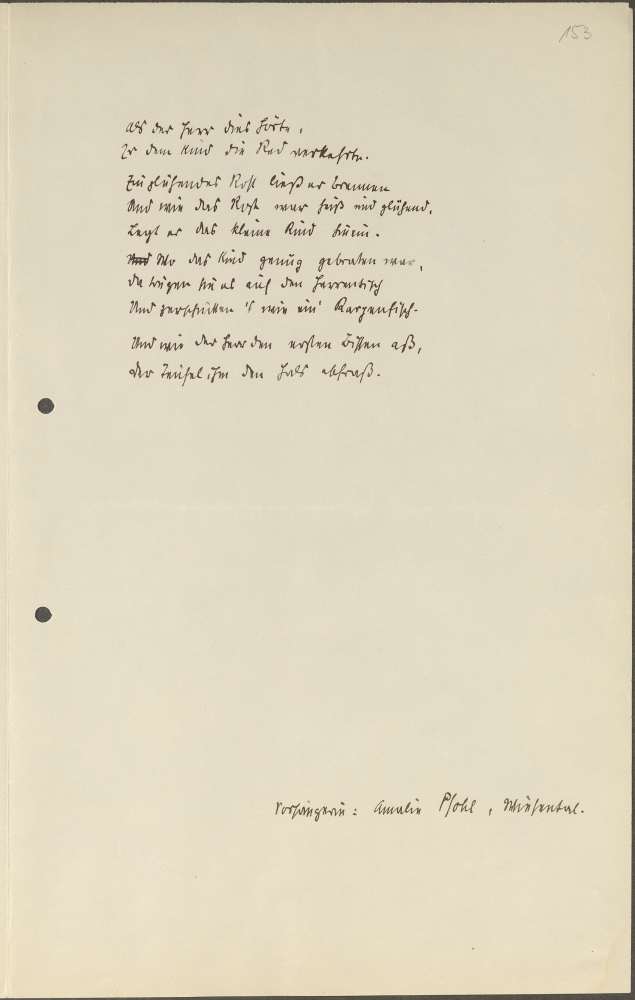 153
Als der Herr dies hörte,
Er dem Kind die Red verkehrte.
Zu glühendes Rost ließ er brennen
Und wie das Rost war heiß und glühend,
Legt er das kleine Kind hinein.
Wo das Kind genug gebraten war,
da trugen sie es auf den Herrentisch
Und zerschnitten 's wie ein' Karpenfisch.
Und wie der Herr den ersten Bissen aß,
der Teufel ihm den Hals abfraß.
Vorsängerin: Amalie Pfohl, Wiesental.